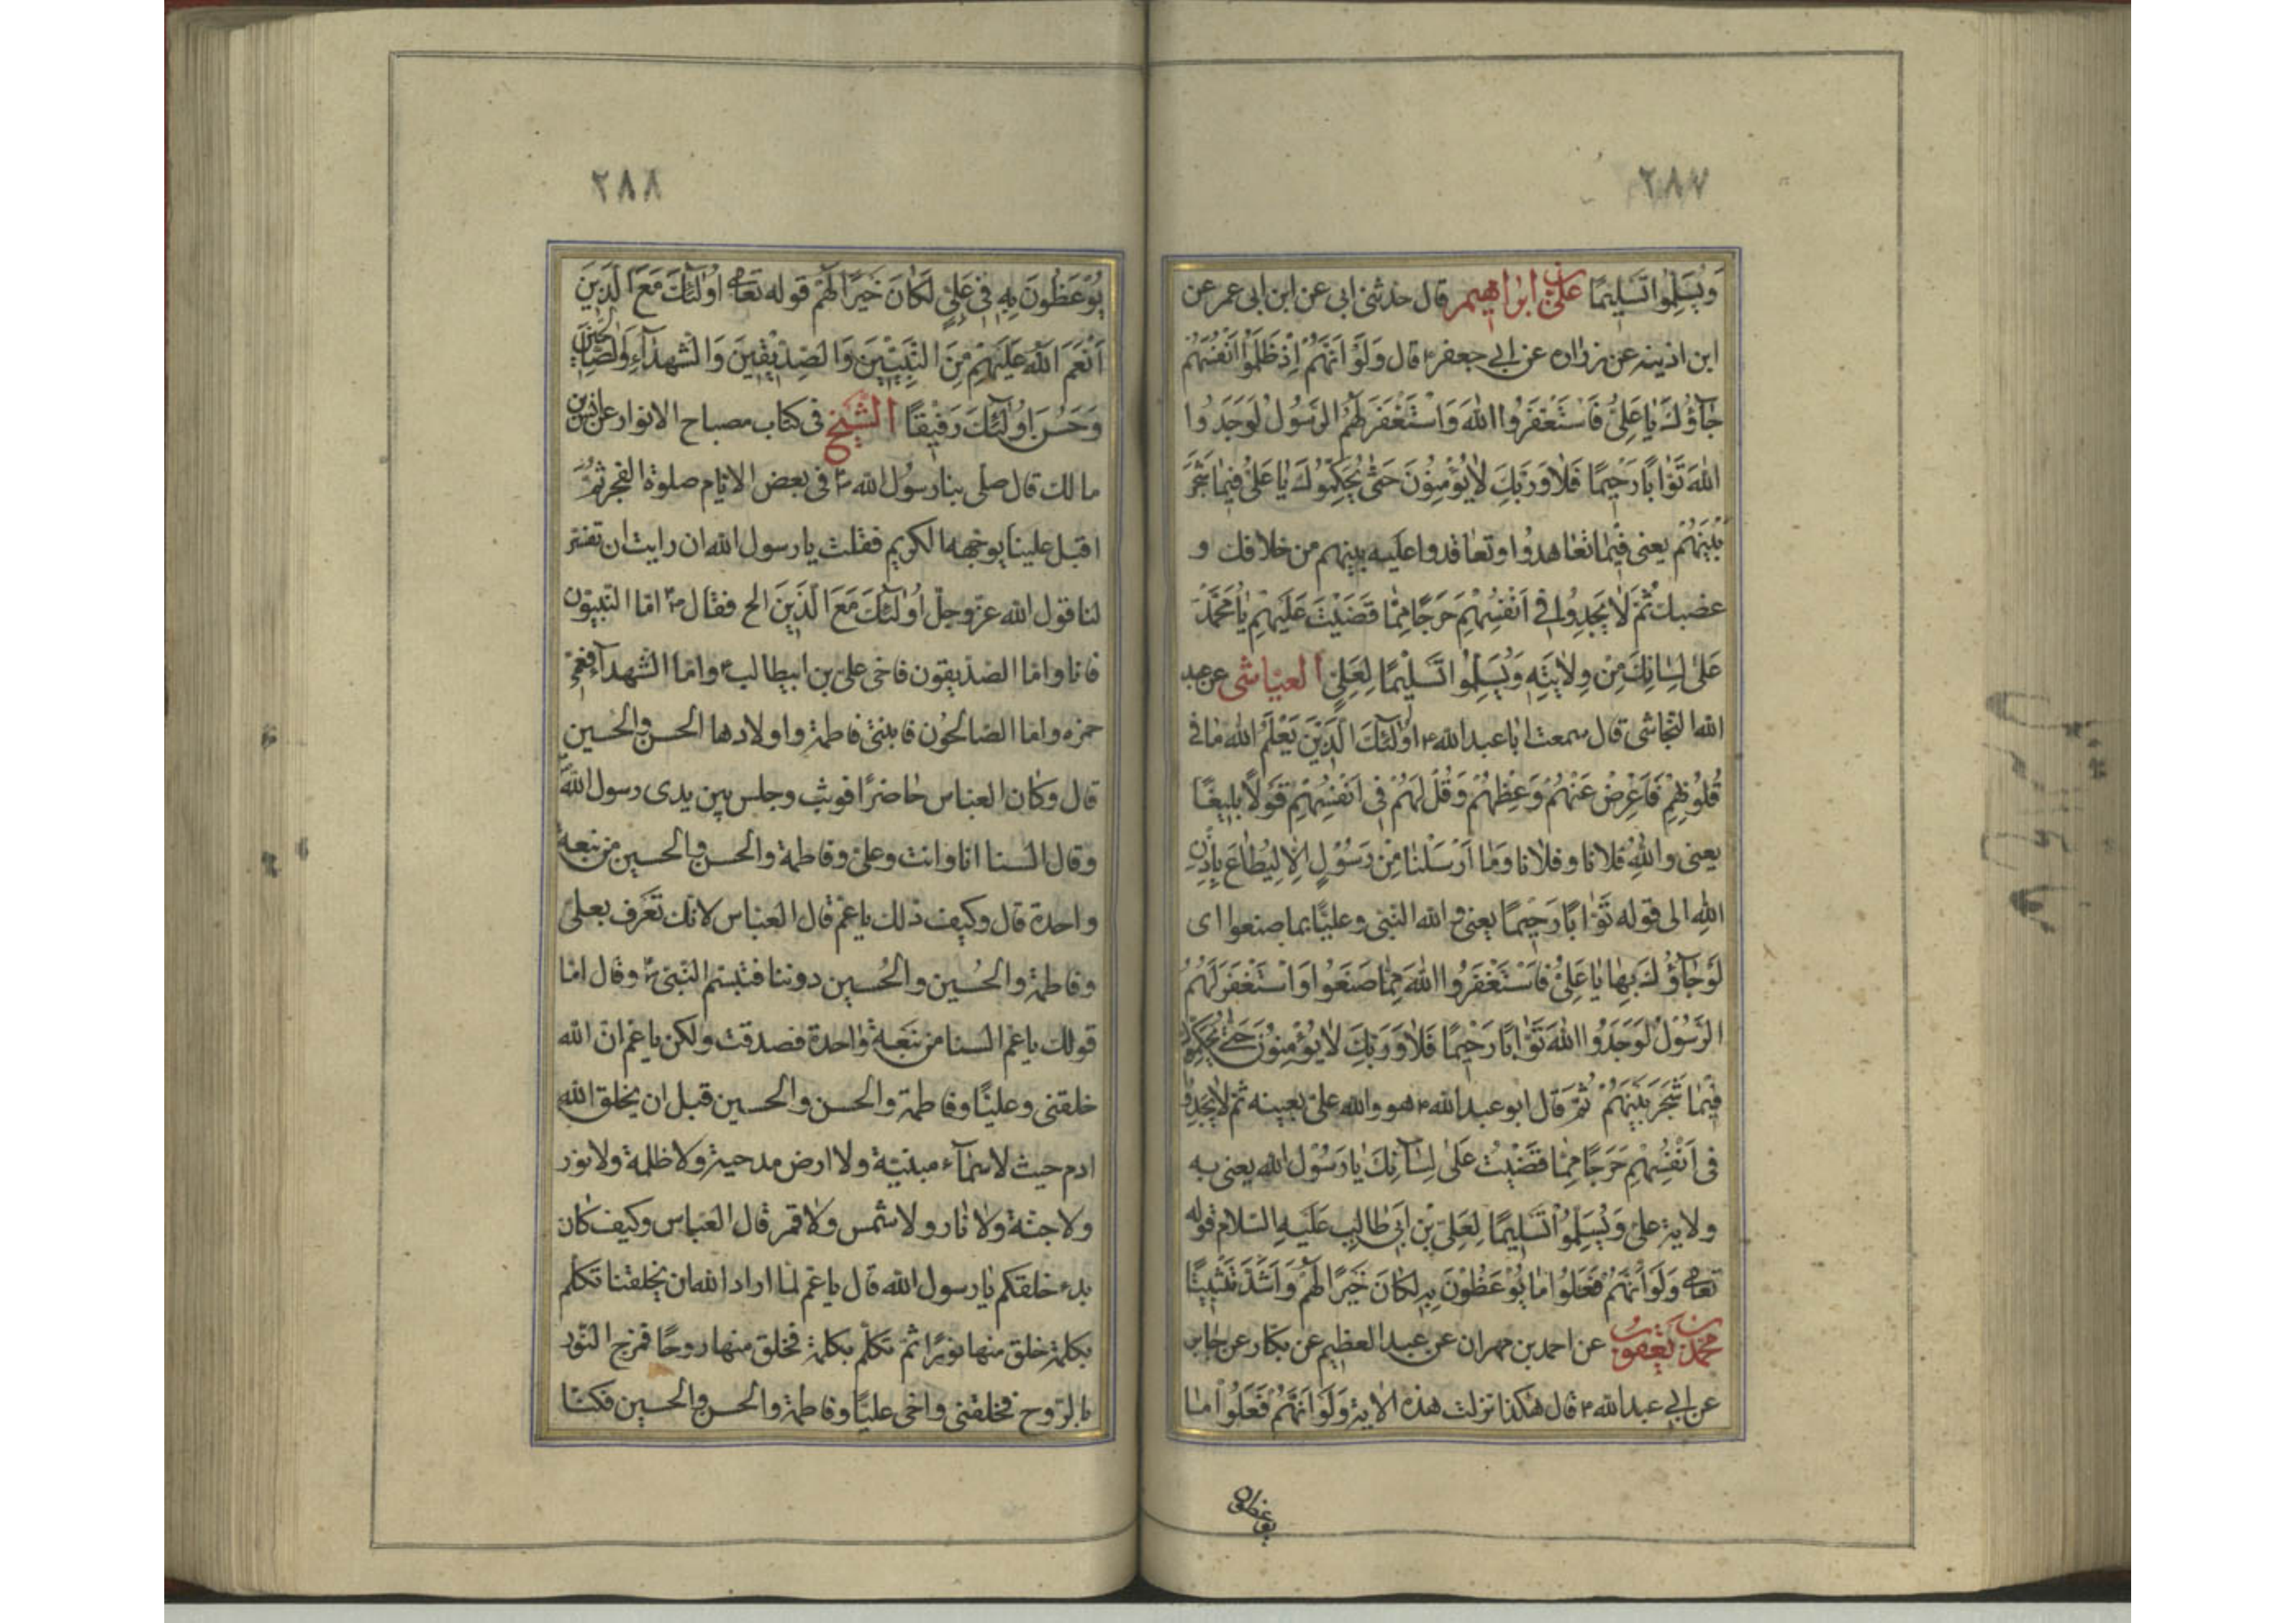 ٢٨٧
وَيُسَلِّمُوا تَسْلِيمًا علىّ بن ابراهيم قال حدثنى ابى عن ابن ابى عمر عن
ابن اذينه عن زراره عن ابى جعفر ع قال وَلَوْ اَنَّهُمْ اِذْ ظَلَمُوا اَنْفُسَهُمْ
جٰآؤُكَ يٰا عَلِىُّ فَاسْتَغْفَرُوا اللهَ وَاسْتَغْفَرَ لَهُمُ الرَّسُولُ لَوَجَدُوا
اللهَ تَوّٰابًا رَحِيمًا فَلٰا وَرَبِّكَ لٰا يُؤْمِنُونَ حَتّٰى يُحَكِّمُوكَ يٰا عَلىُّ فِيمٰا شَجَرَ
بَيْنَهُمْ يعنى فيمٰا تعٰاهدُوا وتعٰاقدوا عليه بينهم من خلافك و
غضبك ثُمَّ لٰا يَجِدُوا فِى اَنْفُسِهِمْ حَرَجًا مِمّٰا قَضَيْتَ عَلَيْهِمْ يٰا مُحَمَّدُ
عَلىٰ لِسٰانِكَ مِنْ وِلٰايَتِهِ وَيُسَلِّمُوا تَسْلِيمًا لِعَلِىٍّ العيّاشى عن عبد
الله النجاشى قال سمعت ابا عبد الله ع اُولٰئِكَ الَّذِينَ يَعْلَمُ اللهُ مٰا فى
قُلُوبِهِمْ فَاَعْرِضْ عَنْهُمْ وَعِظْهُمْ وَقُلْ لَهُمْ فى اَنْفُسِهِمْ قَوْلًا بَلِيغًا
يعنى واللهِ فلانا وفلانا وَمٰا اَرْسَلْنٰا مِنْ رَسُوْلٍ اِلّٰا لِيُطٰاعَ بِاِذْنِ
اللهِ الى قوله تَوّٰابًا رَحِيمًا يعنى والله النّبىّ وعليًّا بما صنعوا اى
لَوْ جٰآؤُكَ بِهٰا يٰا عَلِىُّ فَاسْتَغْفَرُوا اللهَ مِمّٰا صَنَعُوا وَاسْتَغْفَرَ لَهُمُ
الرَّسُوْلُ لَوَجَدُوا اللهَ تَوّٰابًا رَحِيْمًا فَلٰا وَرَبِّكَ لٰا يُؤْمِنُوْنَ حَتّٰى يُحَكِّمُوكَ
فِيْمٰا شَجَرَ بَيْنَهُمْ ثُمَّ قال ابو عبد الله ع هو والله علىّ بعينه ثمّ لٰا يَجِدُوا
فى اَنْفُسِهِمْ حَرَجًا مِمّٰا قَضَيْتَ عَلىٰ لِسٰانِكَ يٰا رَسُوْلَ اللهِ يعنى به
ولاية علىّ وَيُسَلِّمُوْا تَسْلِيمًا لِعَلِىِّ بْنِ اَبى طٰالِبٍ عَلَيْهِ السّلام قوله
تعالى وَلَوْ اَنَّهُمْ فَعَلُوا مٰا يُوْعَظُوْنَ بِهِ لَكٰانَ خَيْرًا لَهُمْ وَاَشَدَّ تَثْبِيتًا
محمّد بن يعقوب عن احمد بن مهران عن عبد العظيم عن بكّار عن جابر
عن ابى عبد الله ع قال هٰكذا نزلت هذه الاية وَلَوْ اَنَّهُمْ فَعَلُوْا مٰا
يوعظون
٢٨٨
يُوْعَظُونَ بِهِ فى عَلِىٍّ لَكٰانَ خَيْرًا لَهُمْ قوله تعالى اُولٰئِكَ مَعَ الَّذِينَ
اَنْعَمَ اللهُ عَلَيْهِمْ مِنَ النَّبِيّينَ وَالصِّدِّيقِينَ وَالشُّهَدآءِ وَالصّٰالِحِينَ
وَحَسُنَ اُولٰئِكَ رَفيقًا الشّيخ فى كتاب مصباح الانوار عن انس بن
مالك قال صلّى بنا رسُول الله ص فى بعض الايّام صلوة الفجر ثمّ
اقبل علينا بوجهه الكريم فقلت يا رسول الله ان رايت ان تفسّر
لنا قول الله عزّ وجلّ اُولٰئِكَ مَعَ الَّذِينَ الخ فقال ص امّا النّبيّون
فانا وامّا الصّدّيقون فاخى علىّ بن ابيطالب ع وامّا الشّهدآء فعمّى
حمزه وامّا الصّالحُون فابنتى فاطمة واولادها الحسن والحُسين
قال وكان العبّاس حٰاضرًا فوثب وجلس بين يدى رسول الله
وقال السنا انا وانت وعلىّ وفاطمة والحسن والحسين من نبعة
واحدة قال وكيف ذلك ياعمّ قال العبّاس لانّك تعرّف بعلىّ
وفاطمة والحُسين والحُسين دوننا فتبسّم النّبىّ ص وقال امّا
قولك ياعمّ السنا من نبعة واحدة فصدقت ولكن ياعمّ انّ الله
خلقنى وعليًّا وفاطمة والحسن والحسين قبل ان يخلق الله
ادم حيث لا سمآء مبنيّة ولا ارض مدحيّة ولا ظلمة ولا نور
ولا جنّة ولا نٰار ولا شمس ولا قمر قال العبّاس وكيف كٰان
بدء خلقكم يٰا رسول الله قال ياعمّ لمّا اراد الله ان يخلقنا تكلّم
بكلمة خلق منها نورًا ثمّ تكلّم بكلمة فخلق منها روحًا فمزج النّور
بالرّوح فخلقنى واخى عليًّا وفاطمة والحسن والحسين فكنّا